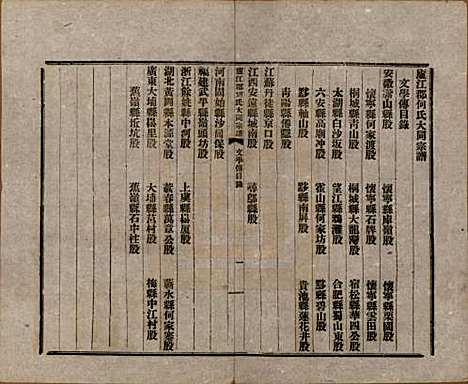 廬江郡何氏大同宗譜
文學傳目錄
安徽霍山縣股 懷寧縣廟嶺股 懷寧縣栗園股
懷寧縣何家渡股 懷寧縣石牌股 懷寧縣雲田股
桐城縣青山股 桐城縣大龍灣股 宿松縣華四公股
太湖縣白沙坂股 望江縣鴉灘股 合肥縣蜀山東股
六安縣高廟冲股 霍山縣何家坊股 黟縣碧山股
黟縣軸山股 黟縣南屏股 貴池縣蓮花井股
青陽縣傳壠股
江蘇丹徒縣京口股
江西安遠縣城南股 尋鄔縣股
廬江郡何氏大同宗譜 文學傳目錄 一
河南固始縣沙岡保股
福建武平縣嶺頭坊股
浙江餘姚縣中河股 上虞縣股
湖北黃岡縣本源堂股 蘄春縣萬章公股 蘄水縣何家寨股
廣東大埔縣楊里股 大埔縣莒村股 梅縣中江村股
蕉嶺縣坵坑股 蕉嶺縣石中柱股